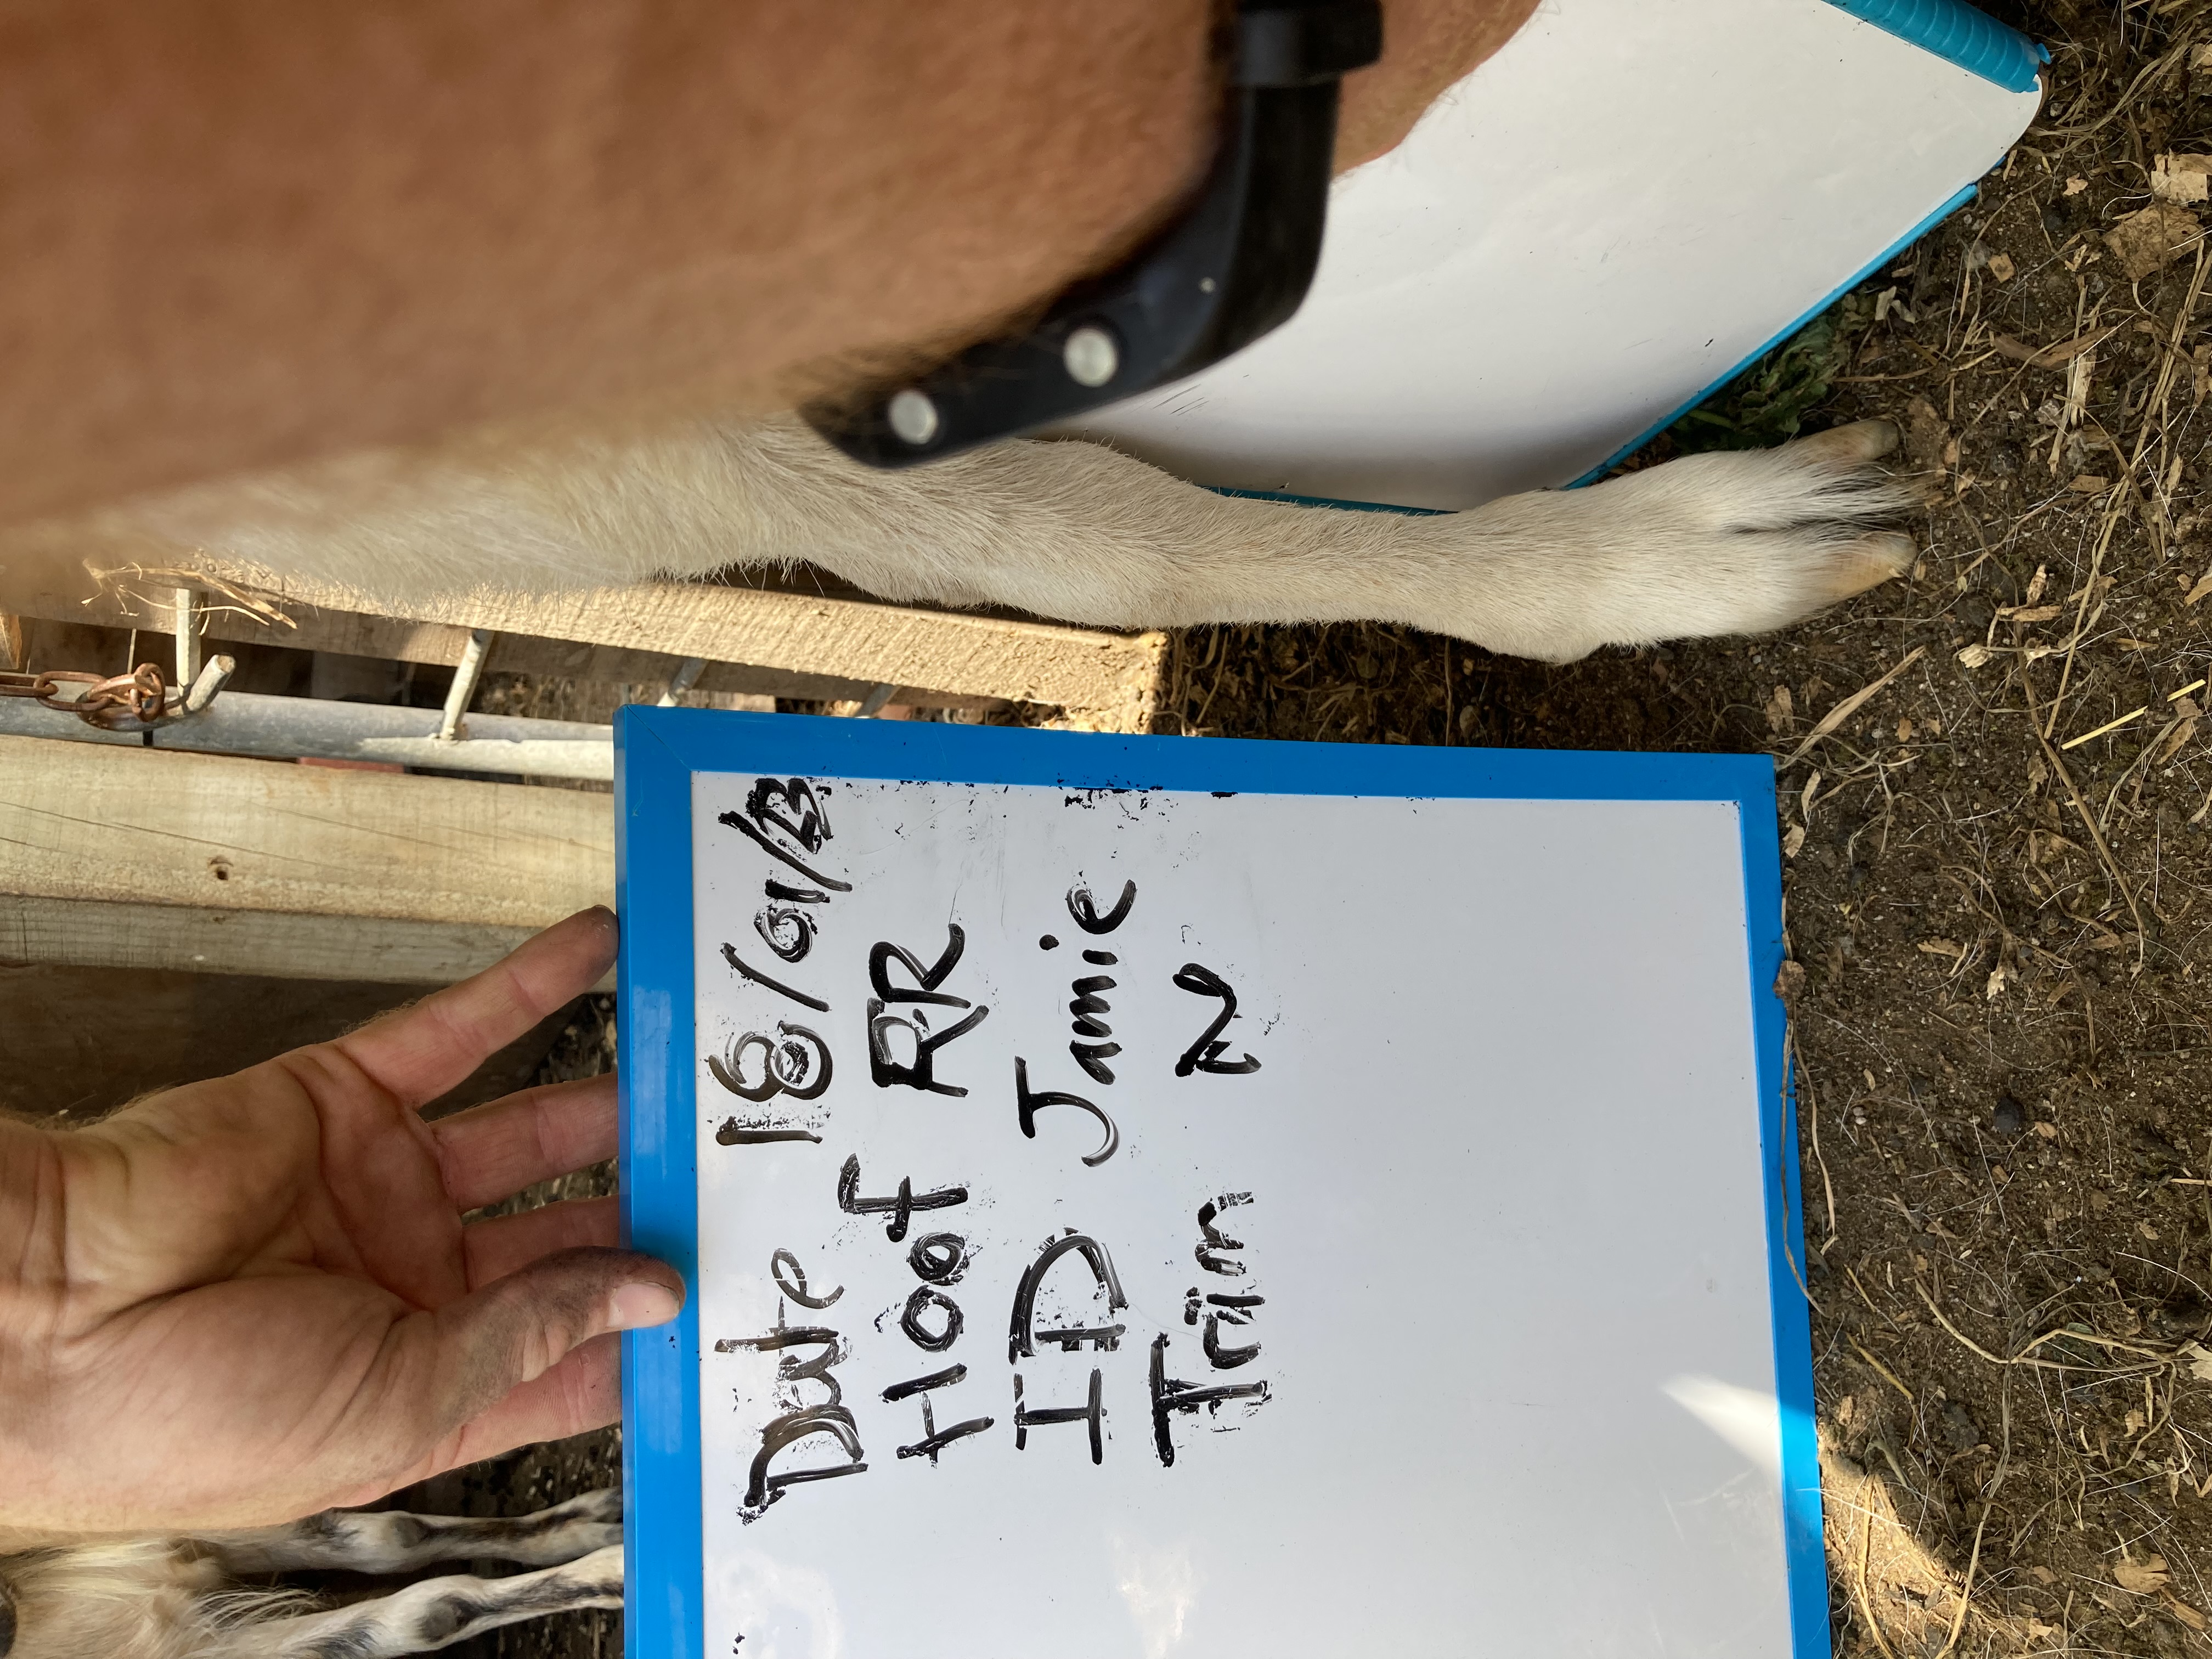 Date 18/01/23
Hoof RR
ID Jamie
Trim N